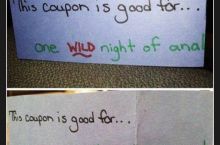 This coupon is good for...
one WILD night of anal
This coupon is good for...